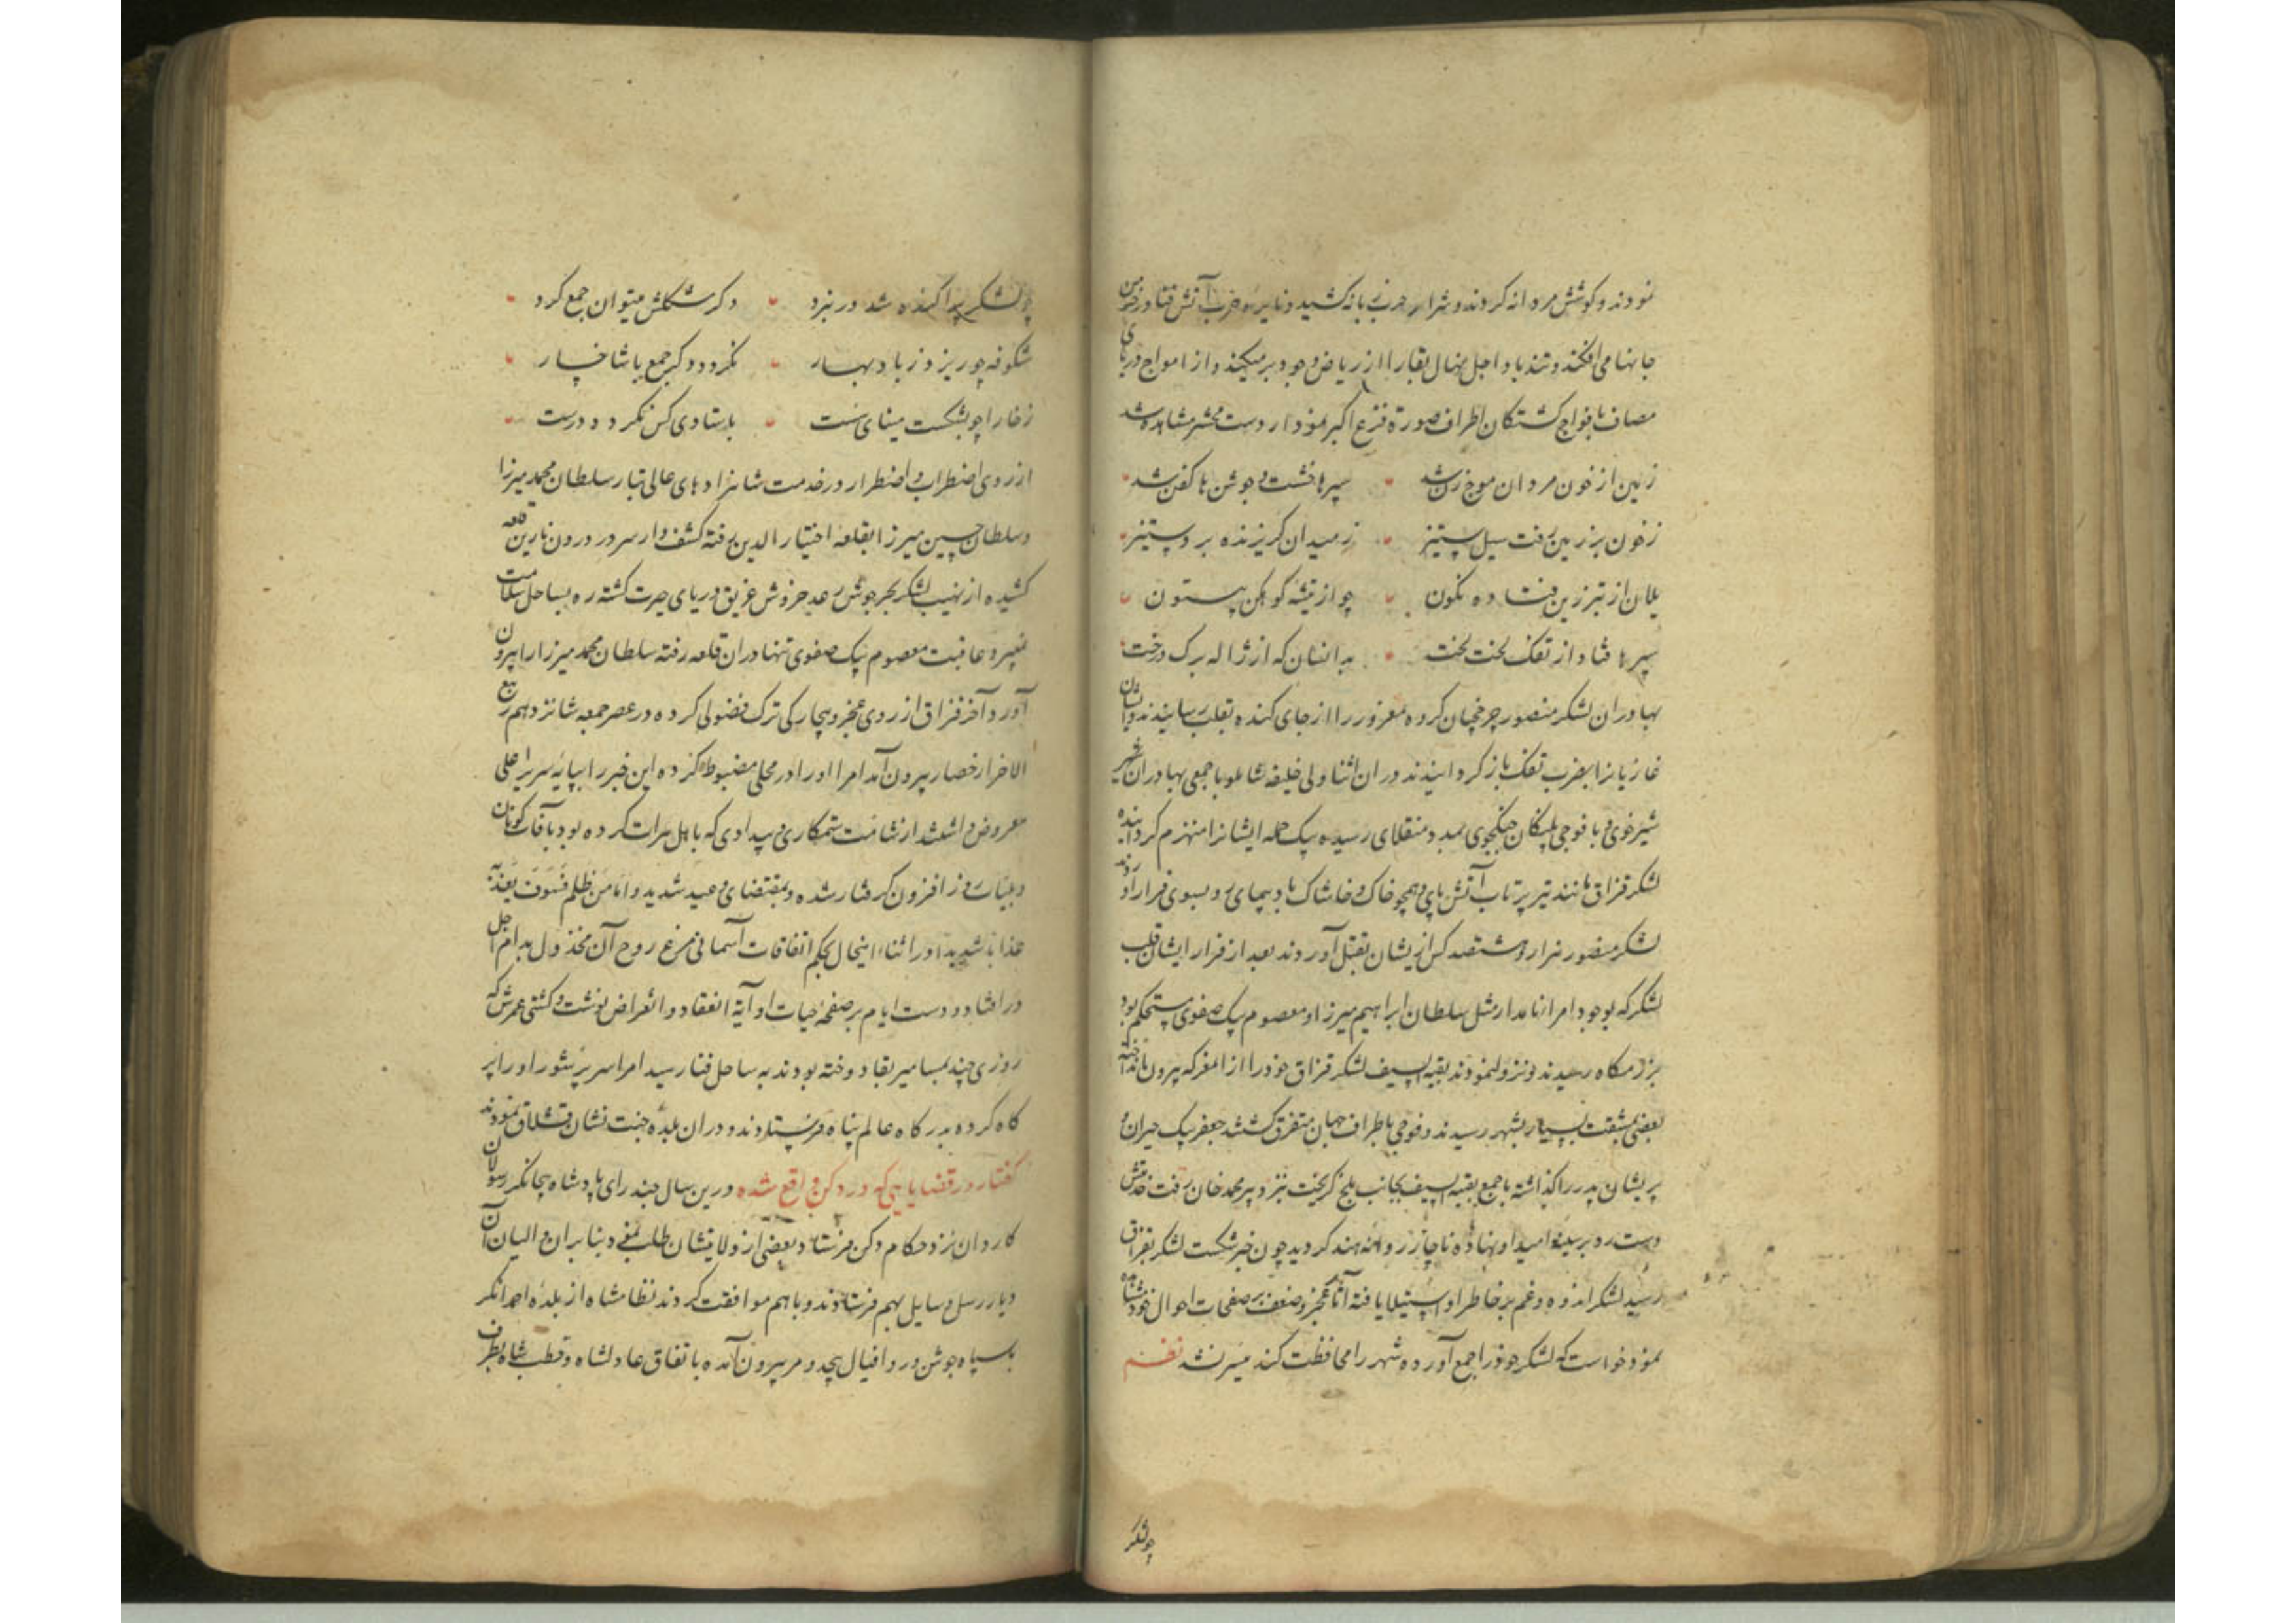 نمودند و کوشش مردانه کردند و شرار حرب زبانه کشید و نایره ضرب آتش فنا در خرمن
جانها می افکند و تند باد اجل نهال بقا را از ریاض وجود بر میکند و از امواج دریای
مصاف با فواج کشتکان اطراف صورة فزع اکبر نمودار دست محشر مشاهده شد
زمین از خون مردان موج زن شد سپرها خشت و جوشن ها کفن شد
ز خون بر زمین رفت سیل ستیز ز میدان کریزنده بر دستیز
یلان از تبرزین فتاده نکون چو از تیشه کوهکن بیستون
سپرها فتاد از تفک لخت لخت بدانسان که از ژاله برک درخت
بهادران لشکر منصور چرخچیان کروه مغرور را از جای کنده بقلب رسانیدند و ایشان
غازیانرا بضرب تفک باز کردانیدند در ان اثنا ولی خلیفه شاملو با جمعی بهادران
شیر خوی و با فوجی پلنکان جنکجوی بمدد منقلای رسیده بیک حمله ایشانرا منهزم کردانیده
لشکر قزاق مانند تیر پرتاب آتش پای و همچو خاک و خاشاک باد پیمای رو بسوی فرار آوردند
لشکر منصور هزار و هشتصد کس از یشان بقتل آوردند بعد از فرار ایشان قلب
لشکر که بوجود امراء نامدار مثل سلطان ابراهیم میرزا و معصوم بیک صفوی مستحکم بود
برزمکاه رسیدند و نزول نمودند بقیه السیف لشکر قزاق خود را از المعرکه بیرون انداخته
بعضی بمشقت بسیار بشهر رسیدند و فوجی باطراف جهان متفرق کشتند جعفر بیک حیران و
پریشان پدر را کذاشته با جمع بقیه السیف بجانب بلخ کریخت نزد پیر محمد خان رفت خدمتش
دست رد بر سینه امید او نهاده ناچار روانه هند کردید چون خبر شکست لشکر بقزاق
رسید لشکر اندوه و غم بر خاطر او استیلا یافته آثار عجز و ضعف بر صفحات احوال خود مشاهده
نمود خواست که لشکر خود را جمع آورده شهر را محافظت کند میسر نشد نظم
چو لشکر
چو لشکر پراکنده شد در نبرد دکر مشکلش میتوان جمع کرد
شکوفه چو ریزد ز باد بهار نکردد دکر جمع با شاخسار
ز خارا چو بشکست مینای سست باستادی کس نکردد درست
از روی اضطراب و اضطرار در خدمت شاهزادهای عالی تبار سلطان محمد میرزا
و سلطان حسین میرزا بقلعه اختیار الدین رفته کشف وار سر در درون نارین قلعه
کشیده از نهیب لشکر بحر جوش رعد خروش غریق دریای حیرت کشته ره بساحل سلامت
نمیبرد عاقبت معصوم بیک صفوی تنها در ان قلعه رفته سلطان محمد میرزا را بیرون
آورد و آخر قزاق از روی عجز و بیچارکی ترک فضولی کرده در عصر جمعه شانزدهم ربیع
الاخر از حصار بیرون آمد امرا او را در محلی مضبوط کرده این خبر را بپایه سریر اعلی
معروض داشتند از شامت ستمکاری و بیدادی که با اهل هرات کرده بود بآفات کوناکون
و بلیات روز افزون کرفتار شده و بمقتضای وعید شدید و اما من ظلم فسوف نعذبه
عذابا شدیدا در اثناء اینحال بحکم اتفاقات آسمانی مرغ روح آن مخذول بدام اجل
در افتاد و دست ایام بر صفحه حیات او آیة انعقاد و انقراض نوشت و کشتی عمرش که
روزی چند بمسامیر بقا دوخته بودند به ساحل فنا رسید امرا سر پر شور او را پر
کاه کرده بدرکاه عالم پناه فرستادند و در ان بلده جنت نشان قشلاق نمودند
کفتار در قضایایی که در دکن واقع شده درین سال جند رای پادشاه بیجانکر رسولان
کاردان نزد حکام دکن فرستاد و بعضی از ولایتشان طلب نمود بنابران والیان آن
دیار رسل و رسایل بهم فرستادند و با هم موافقت کردند نظامشاه از بلده احمد انکر
با سپاه جوشن ور و افیال بیحد و مر بیرون آمده باتفاق عادلشاه و قطب شاه بطرف